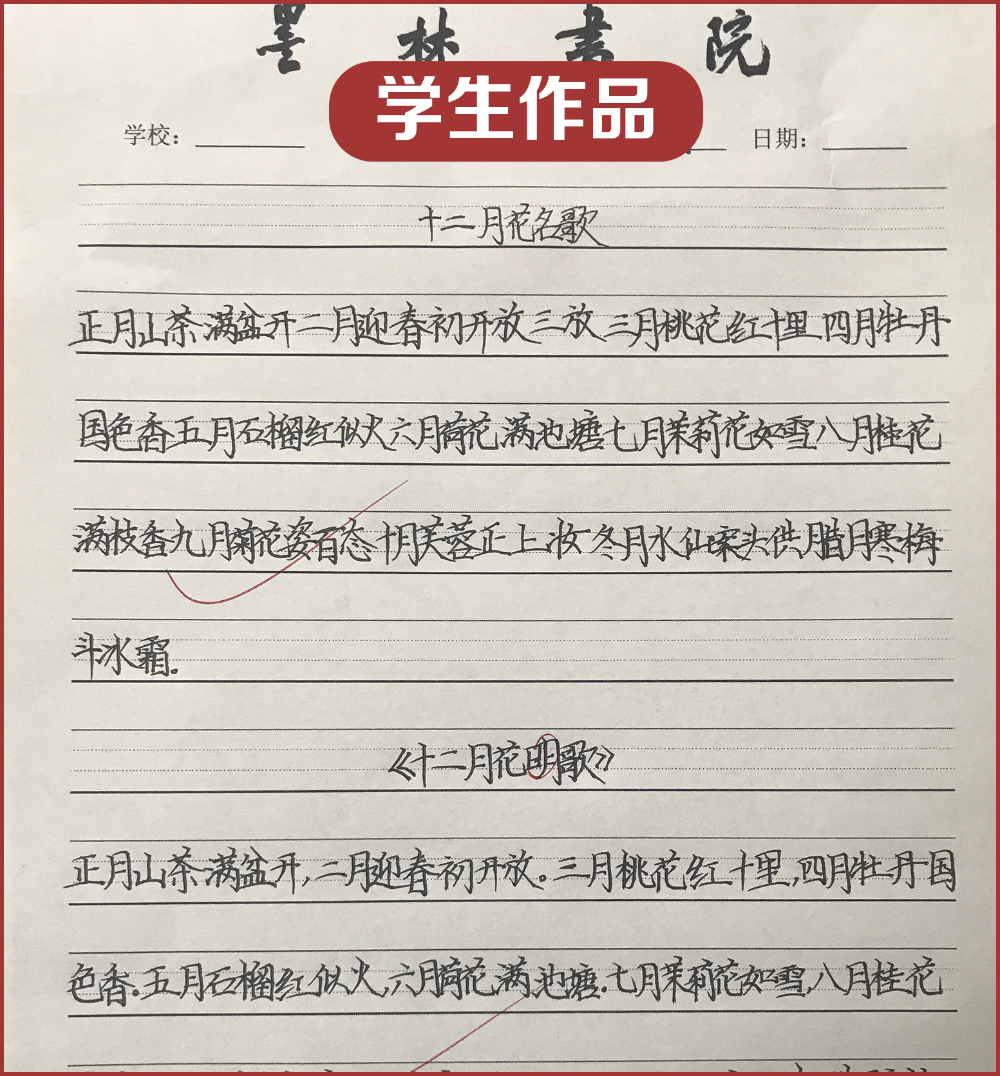 墨林书院
学生作品
学校: 日期:
十二月花名歌
正月山茶满盆开二月迎春初开放三放三月桃花红十里四月牡丹
国色香五月石榴红似火六月荷花满池塘七月茉莉花如雪八月桂花
满枝香九月菊花姿百态十月芙蓉正上妆冬月水仙案头供腊月寒梅
斗冰霜.
《十二月花明歌》
正月山茶满盆开,二月迎春初开放。三月桃花红十里,四月牡丹国
色香.五月石榴红似火,六月荷花满池塘.七月茉莉花如雪,八月桂花